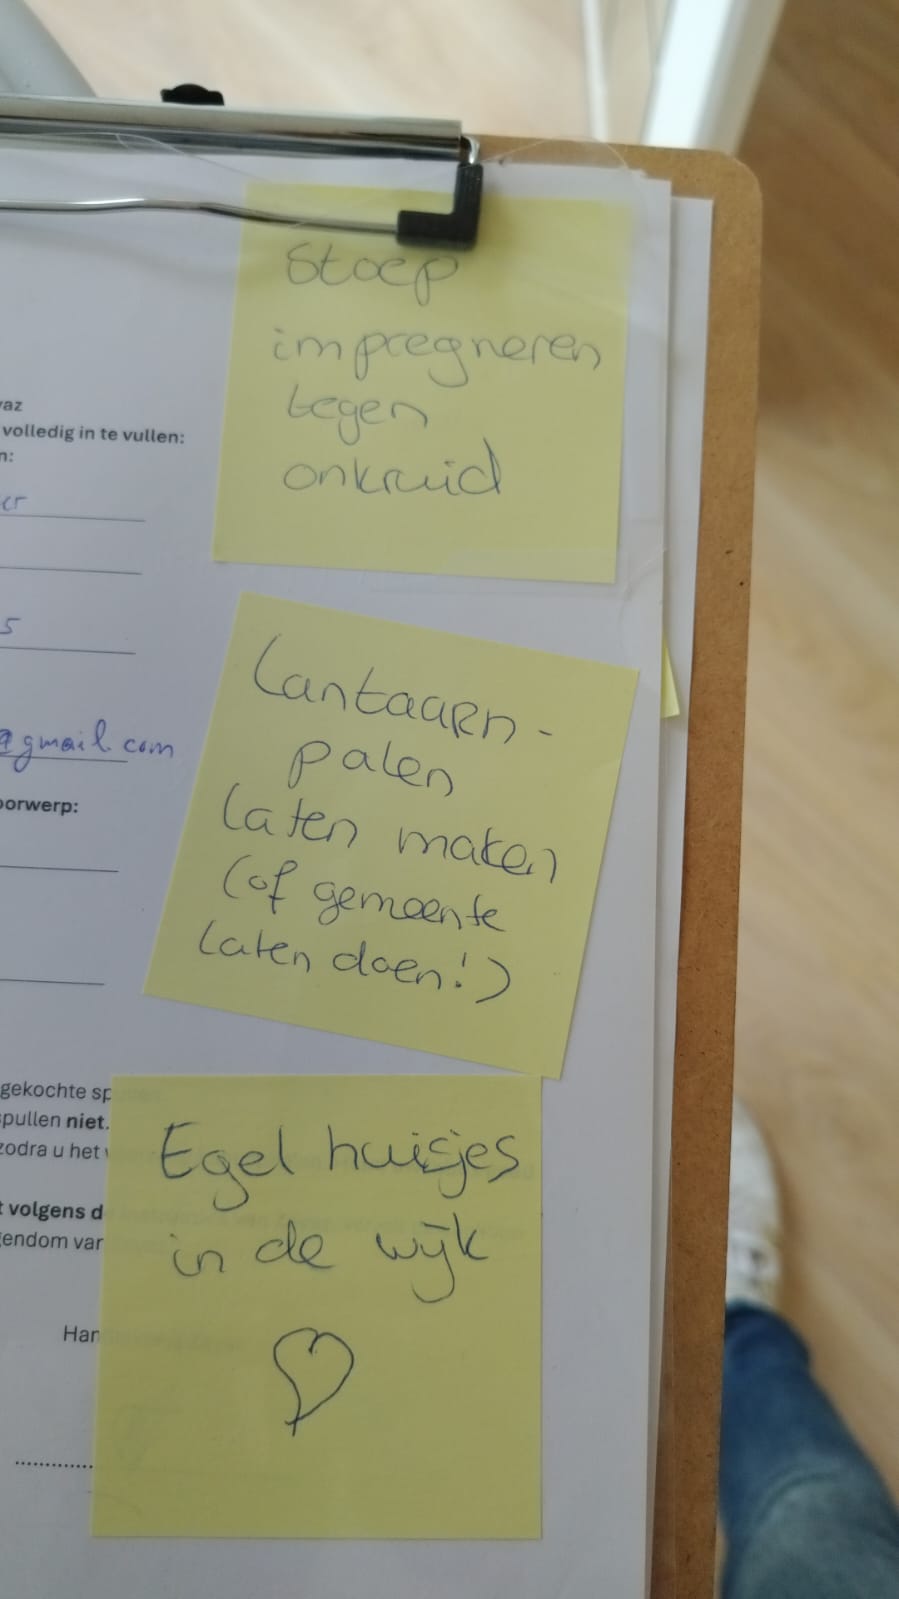 Stoep
impregneren
tegen
onkruid
Lantaarn-
palen
laten maken
(of gemeente
laten doen!)
Egel huisjes
in de wijk
vaz
volledig in te vullen:
n:
er
5
@gmail.com
oorwerp:
gekochte sp
spullen niet.
zodra u het
t volgens d
gendom var
Han